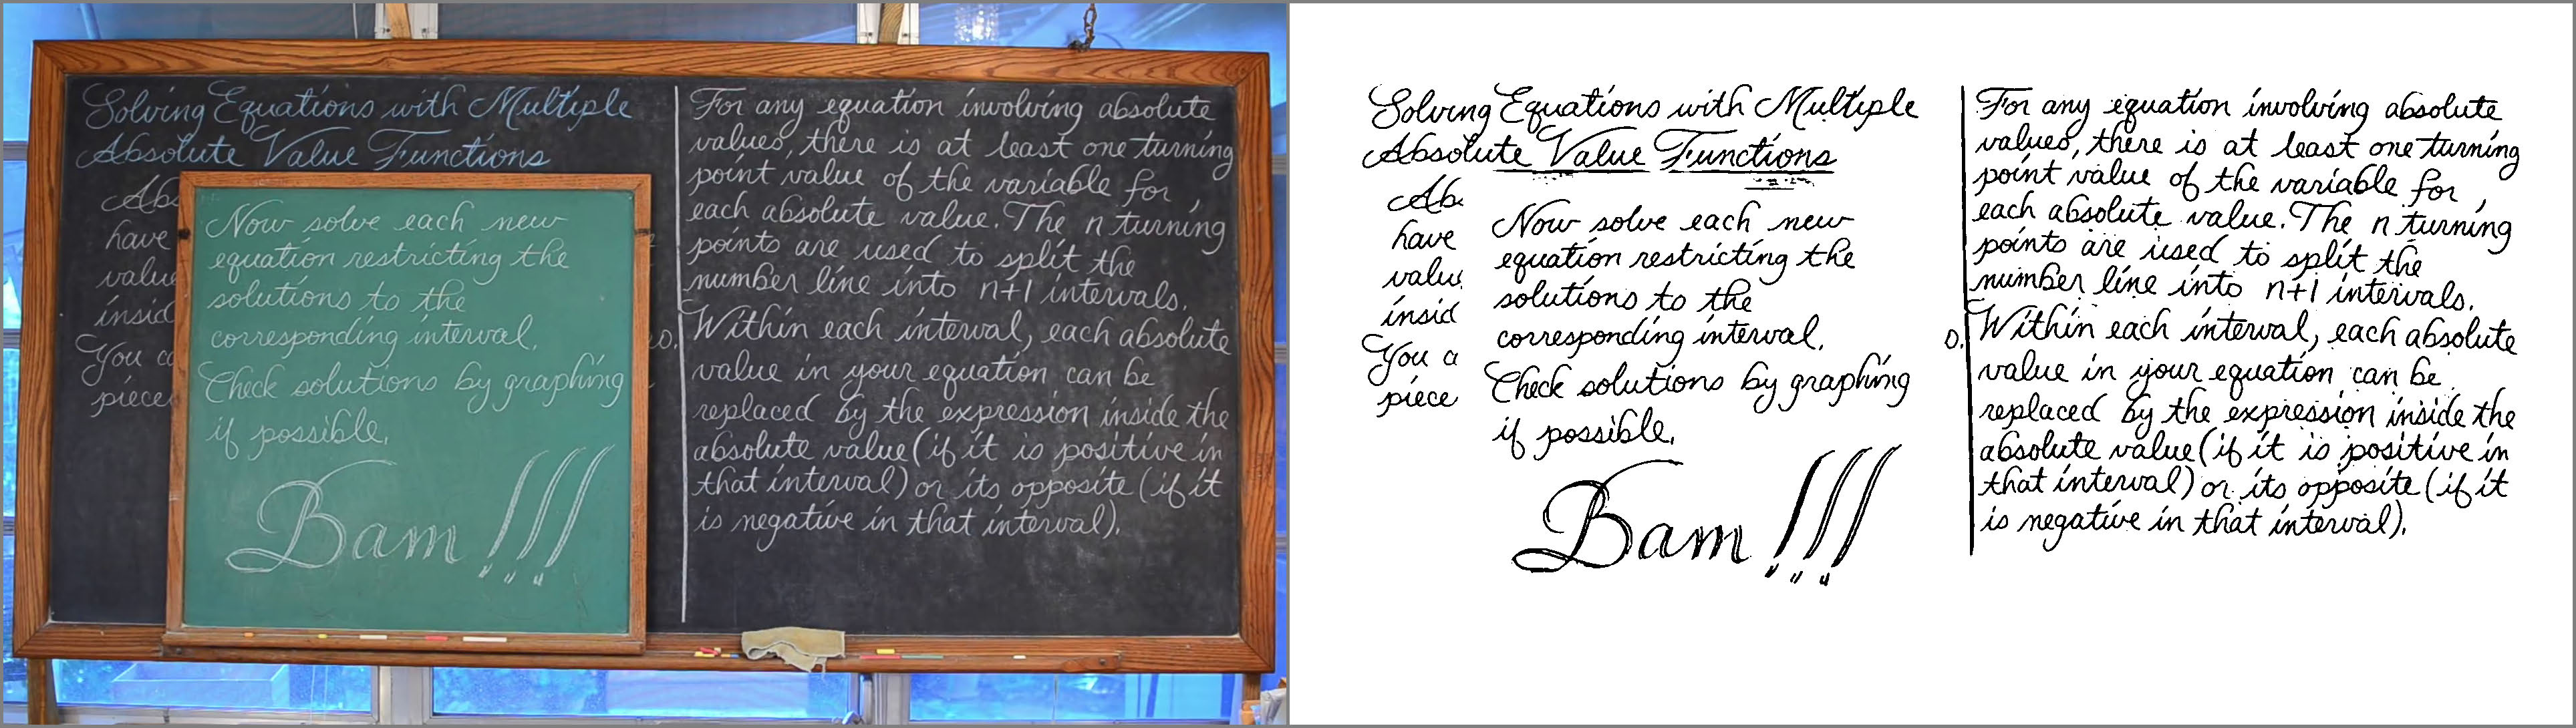 Solving Equations with Multiple
Absolute Value Functions
have
You
Now solve each new
equation restricting the
solutions to the
corresponding interval.
Check solutions by graphing
if possible.
Bam!!!
For any equation involving absolute
values, there is at least one turning
point value of the variable for
each absolute value. The n turning
points are used to split the
number line into n+1 intervals.
Within each interval, each absolute
value in your equation can be
replaced by the expression inside the
absolute value (if it is positive in
that interval) or its opposite (if it
is negative in that interval).
Solving Equations with Multiple
Absolute Value Functions
have
You
Now solve each new
equation restricting the
solutions to the
corresponding interval.
Check solutions by graphing
if possible.
Bam!!!
For any equation involving absolute
values, there is at least one turning
point value of the variable for
each absolute value. The n turning
points are used to split the
number line into n+1 intervals.
Within each interval, each absolute
value in your equation can be
replaced by the expression inside the
absolute value (if it is positive in
that interval) or its opposite (if it
is negative in that interval).